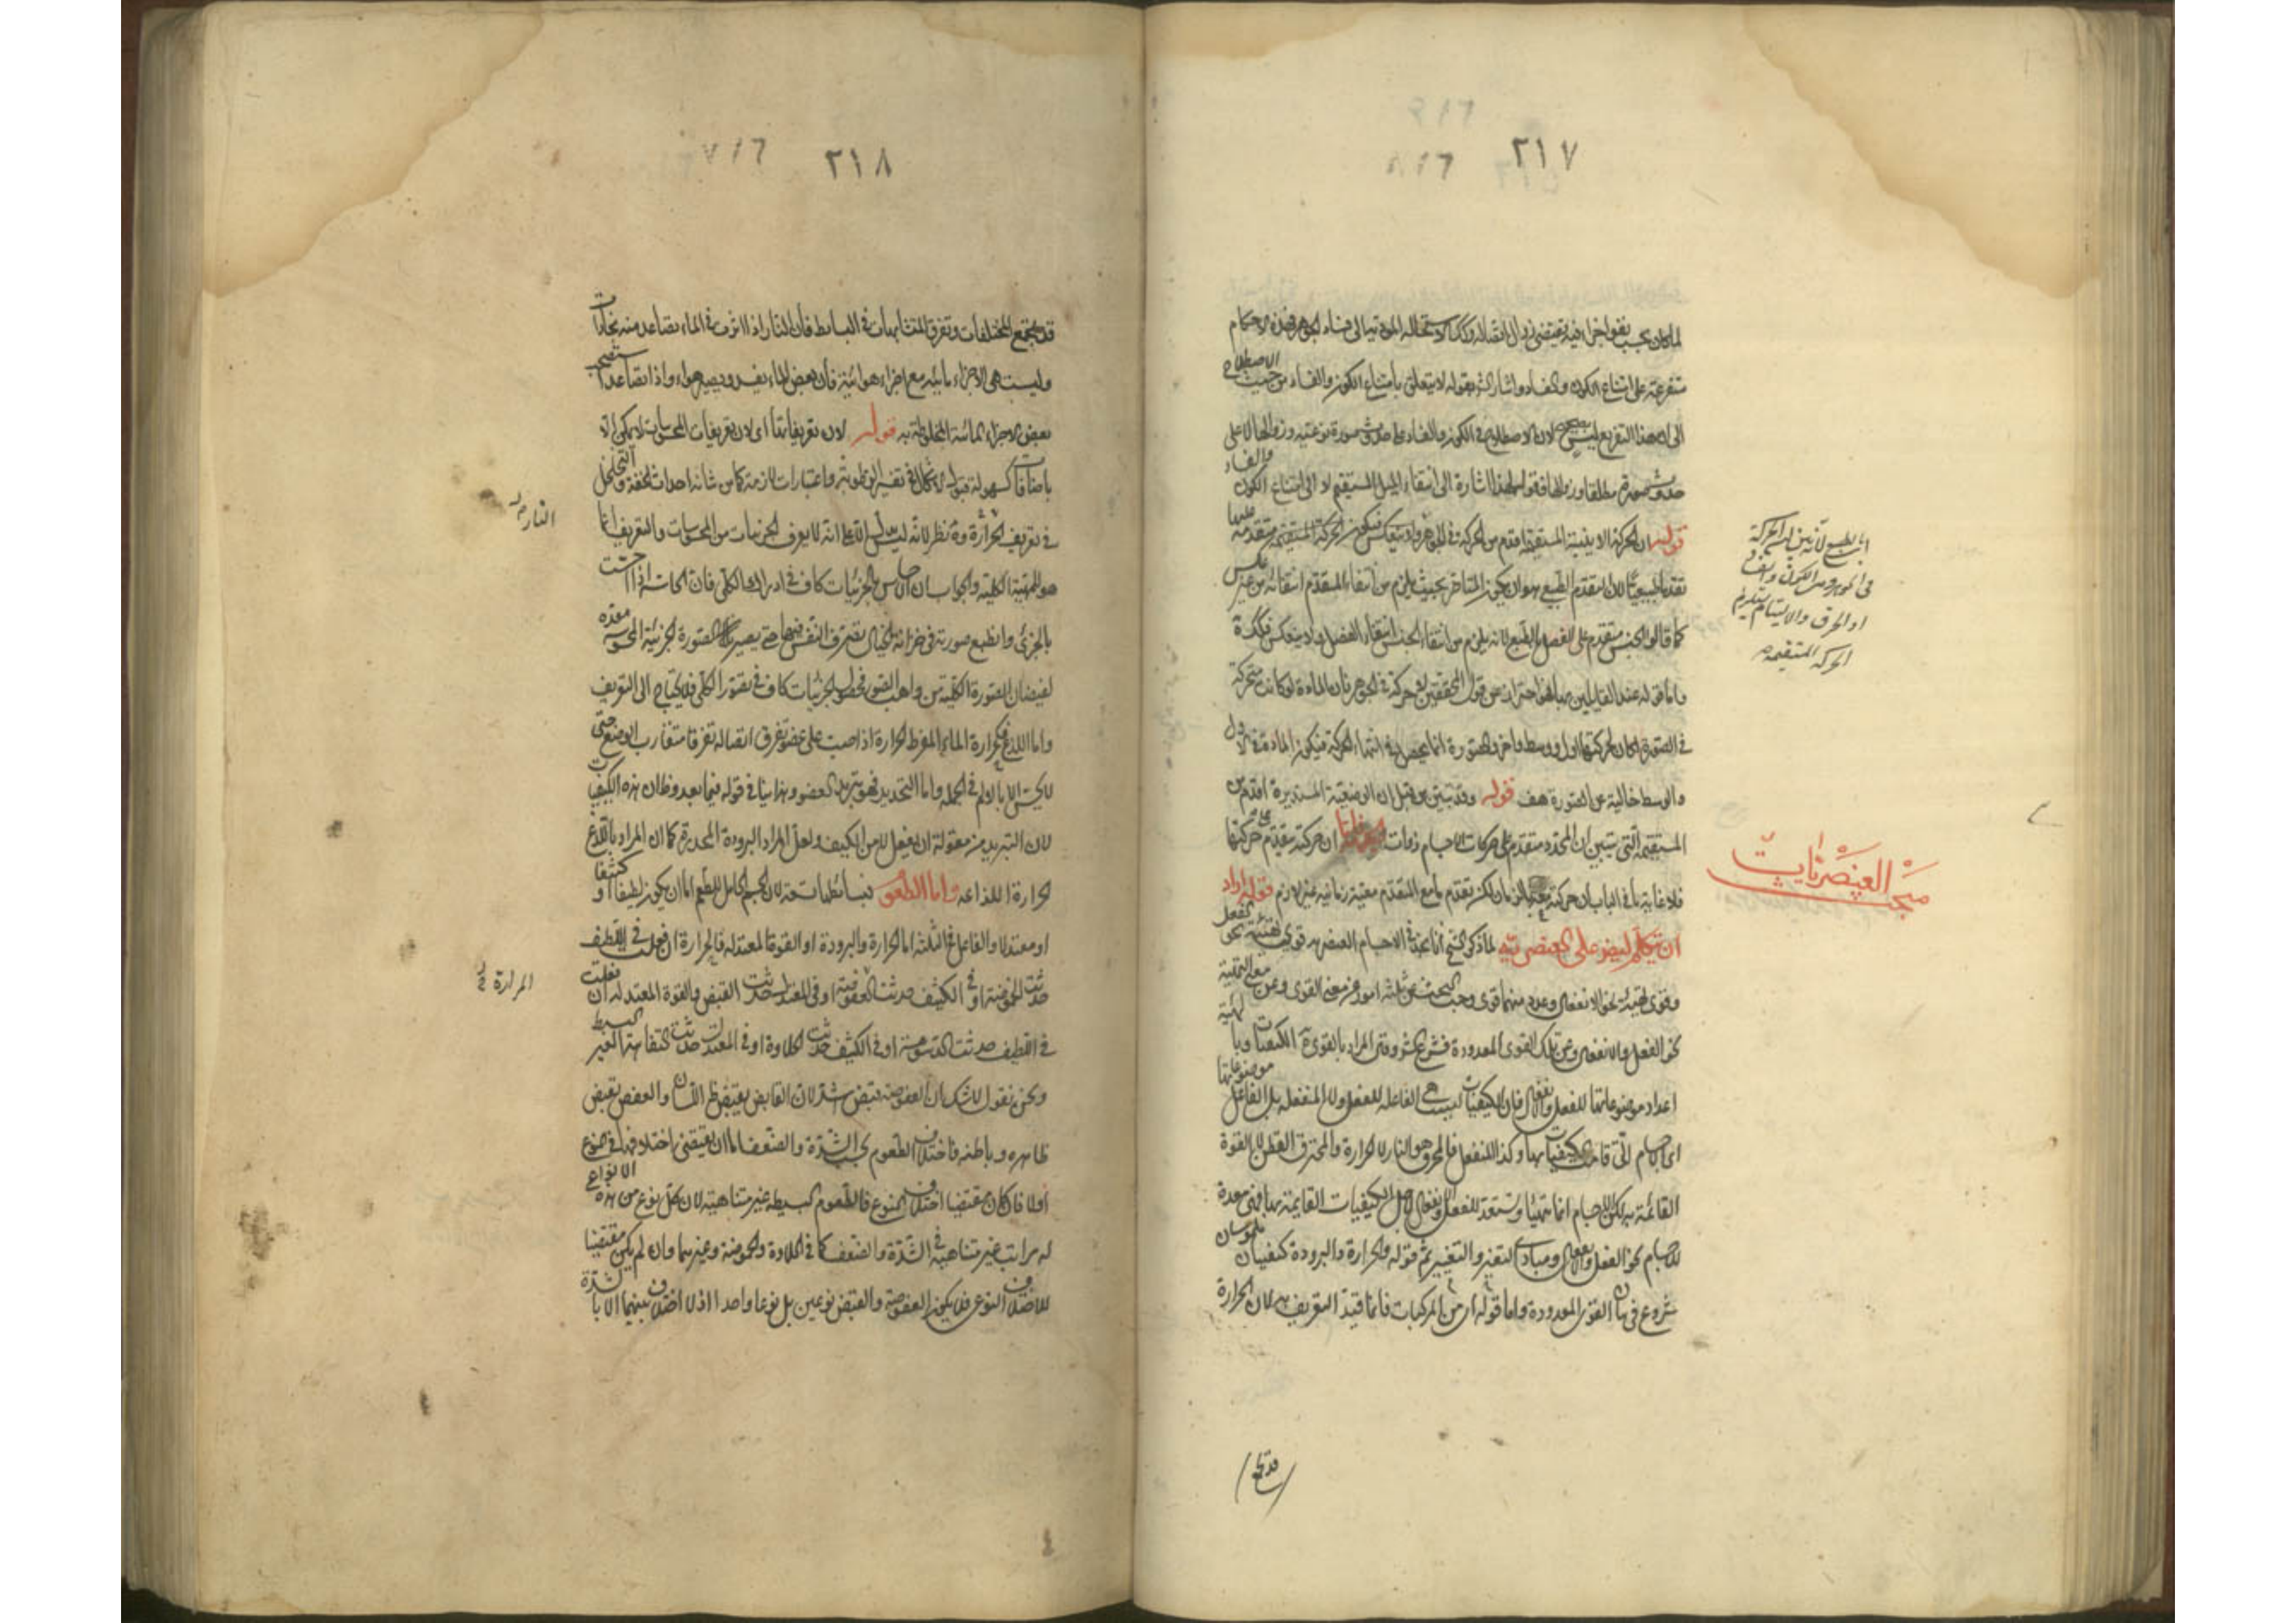 ٢١٧
لما كان يجب بقوا اجزاء فيه يقتضى زوال اتصاله وكذا الاستحالة المؤدية الى فساد الجوهر فهذه الاحكام
متفرعة على امتناع الكون والفساد واشار الشيخ بقوله لا يتعلق بامتناع الكون والفساد من حيث الاصطلاح
الى ان هذا التفريع ليس بصحيح لان الاصطلاح فى الكون والفساد على حدوث صورة نوعية وزوالها لا على
حدوث صورة مطلقا وزوالها فقوله لهذا اشارة الى انتفاء الميل المستقيم لا الى امتناع الكون والفساد
قوله ان الحركة الاينية المستقيمة اقدم من الحركة فى الجوهر ولا ينعكس فيكون الحركة المستقيمة متقدمة عليها
تقدما طبيعيا لان المتقدم بالطبع هو ان يكون المتاخر بحيث يلزم من انتفاء المتقدم انتفائه من غير عكس
كما قالوا الجنس متقدم على الفصل بالطبع لانه يلزم من انتفاء الجنس انتفاء الفصل ولا ينعكس فكذا
واما قوله عند القايلين بها فهو احتراز عن قول المحققين لا حركة فى الجوهر فان المادة لو كانت متحركة
فى الصورة لكان لحركتها اول ووسط واخر والصورة انما يحصل فى انتهاء الحركة فيكون المادة فى الاول
والوسط خالية عن الصورة هف قوله وقد تبين من قبل ان الوضعية المستديرة اقدم من
المستقيمة التى يتبين ان المحدد متقدم على حركات الاجسام ذوات ان حركته متقدم على حركتها
فلا غاية ما فى الباب ان حركته بالزمان لكن تقدم ما مع المتقدم معية زمانية غير لازم قوله اراد
ان يتكلم ايضو على العنصريه لما ذكر الشيخ انا نجد فى الاجسام العنصريه قوى مهيئة نحو الفعل
وقوى مهيئة نحو الانفعال وعدد منهما قوى وجب البحث عن ثلثه امور عن معنى القوى وعن معنى التهيئة
نحو الفعل والانفعال وعن تلك القوى المعدودة فشرع الشروفسر المراد بالقوى الكيفيات وبالمهيئة
اعداد موضوعاتها للفعل والانفعال فان الكيفيات ليست هى الفاعلة للفعل ولا المنفعلة بل الفاعل موضوعاتها
اى الاجسام التى قامت الكيفيات بها وكذا المنفعل فالمحرق هو النار لا الحرارة والمحترق القطن لا القوة
القائمة به لكن الاجسام انما تتهيا وتستعد للفعل والانفعال لاجل الكيفيات القايمة بها فهى معدة
للاجسام نحو الفعل والانفعال ومبادى التغير والتغيير ثم قوله والحرارة والبرودة كيفيتان ملموستان
شروع فى بيان القوى المعدودة واما قوله ان من المركبات فانما قيد التعريف به لان الحرارة
اى بالطبع لانه ينفى الحركة
فى الجوهر وهى الكون والفساد
او الخرق والالتيام يستلزم
الحركة المستقيمة
مبحث العنصريات
قد تجمع
٢١٨
قد تجمع المختلفات وتفرق المتشابهات فى البسائط فان النار اذا اثرت فى الماء يتصاعد منه بخارات
وليست هى الا اجزاء مائية مع اجزاء هوائية فان بعض الماء يفسد ويصير هواء واذا تصاعد استصحب
بعض الاجزاء المائية المخلوطة به قوله لان تعريفاتها اى لان تعريفات المحسوسات لا يمكن الا
باضافات كسهولة قبول الاشكال فى تفسير الرطوبة واعتبارات لازمة كما من شانه احداث الخفة والتخلخل
فى تعريف الحرارة وفيه نظر لانه ليس يدل الا على انه لا يعرف الجزئيات من المحسوسات والتعريف انما
هو للمهية الكلية والجواب ان الاحساس بالجزئيات كاف فى ادراك الكلى فان الحاسة اذا احست
بالجزئى وانطبع صورته فى خزانة الخيال يتصرف النفس فيها حتى يصير تلك الصورة الجزئية المحسوسة معدة
لفيضان الصورة الكلية من واهب الصور فحصول الجزئيات كاف فى تصور الكلى فلا يحتاج الى التعريف
واما اللدغ فكحرارة الماء المفرط الحرارة اذا صبت على عضو تفرق اتصاله تفرقا متقارب الوضع حتى
لا يحس الا بالالم فى الجملة واما التخدير فهو تبريد العضو وهذا ينافى قوله فيما بعد وظان هذه الكيفيات
لان التبريد من مقولة ان يفعل لا من الكيف ولعل المراد البرودة المخدرة كما ان المراد باللدغ
الحرارة اللذاعة واما الطعوم فبسائطها تسعة لان الجسم الحامل للطعم اما ان يكون لطيفا او كثيفا
او معتدلا والفاعل فى الثلثة اما الحرارة والبرودة او القوة المعتدلة فالحرارة ان فعلت فى اللطيف
حدثت الحموضة او فى الكثيف حدثت العفوصة او فى المعتدل حدثت القبض والقوة المعتدلة ان فعلت
فى اللطيف حدثت الدسومة او فى الكثيف حدثت الحلاوة او فى المعتدل حدثت التفاهة الغير البسيطة
ونحن نقول لا شك ان العفوصة قبض شديد لان القابض يقبض ظاهر اللسان والعفص يقبض
ظاهره وباطنه فاختلاف الطعوم بحسب الشدة والضعف اما ان يقتضى اختلافها فى النوع
اولا فان كان مقتضيا لاختلاف النوع فالطعوم البسيطة غير متناهية لان كل نوع من هذه الانواع
له مراتب غير متناهية فى الشدة والضعف كما فى الحلاوة والحموضة وغيرهما وان لم يكن مقتضيا
للاختلاف النوعى فلا يكون العفوصة والقبض نوعين بل نوعا واحدا اذ لا اختلاف بينهما الا بالشدة
النارم
الحرارة